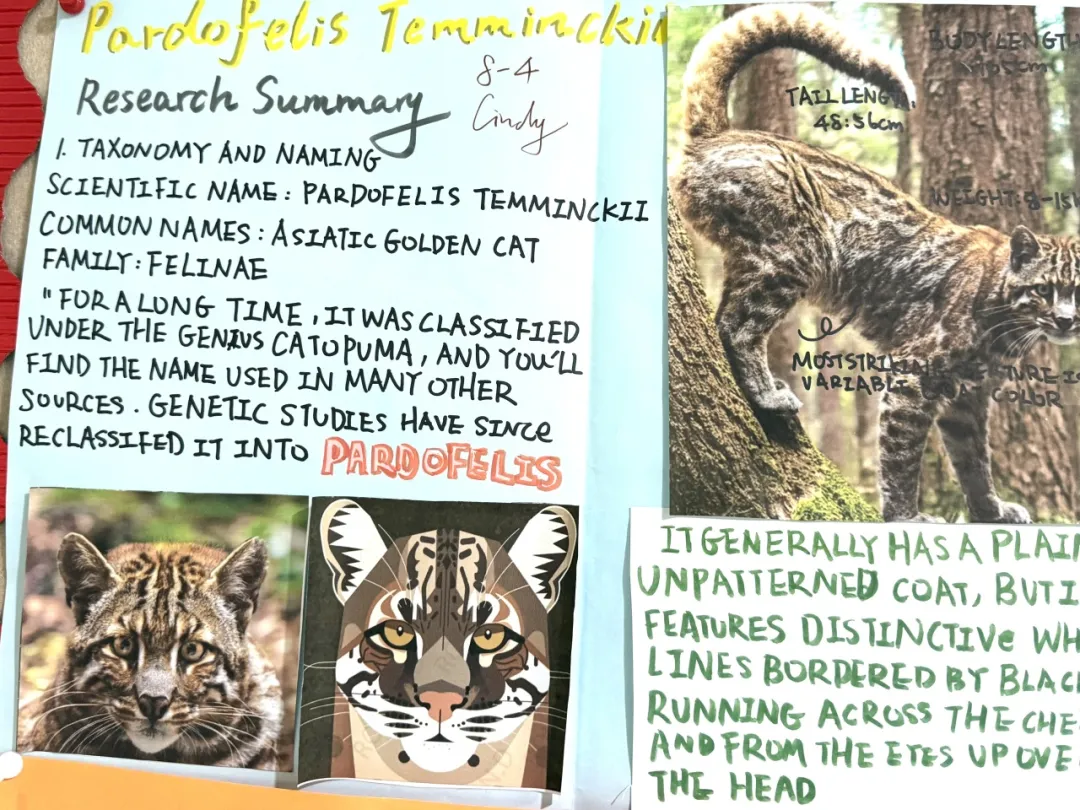 Pardofelis Temminckii
Research Summary
8-4
Cindy
1. TAXONOMY AND NAMING
SCIENTIFIC NAME: PARDOFELIS TEMMINCKII
COMMON NAMES: ASIATIC GOLDEN CAT
FAMILY: FELINAE
"FOR A LONG TIME, IT WAS CLASSIFIED
UNDER THE GENIUS CATOPUMA, AND YOU'LL
FIND THE NAME USED IN MANY OTHER
SOURCES. GENETIC STUDIES HAVE SINCE
RECLASSIFED IT INTO PARDOFELIS
BODY LENGTH
TAIL LENGTH,
48:56cm
WEIGHT: 8-15
MOST STRIKING FEATURE IS
VARIABLE COAT COLOR
IT GENERALLY HAS A PLAIN
UNPATTERNED COAT, BUT I
FEATURES DISTINCTIVE WH
LINES BORDERED BY BLAC
RUNNING ACROSS THE CHE
AND FROM THE EYES UP OVE
THE HEAD